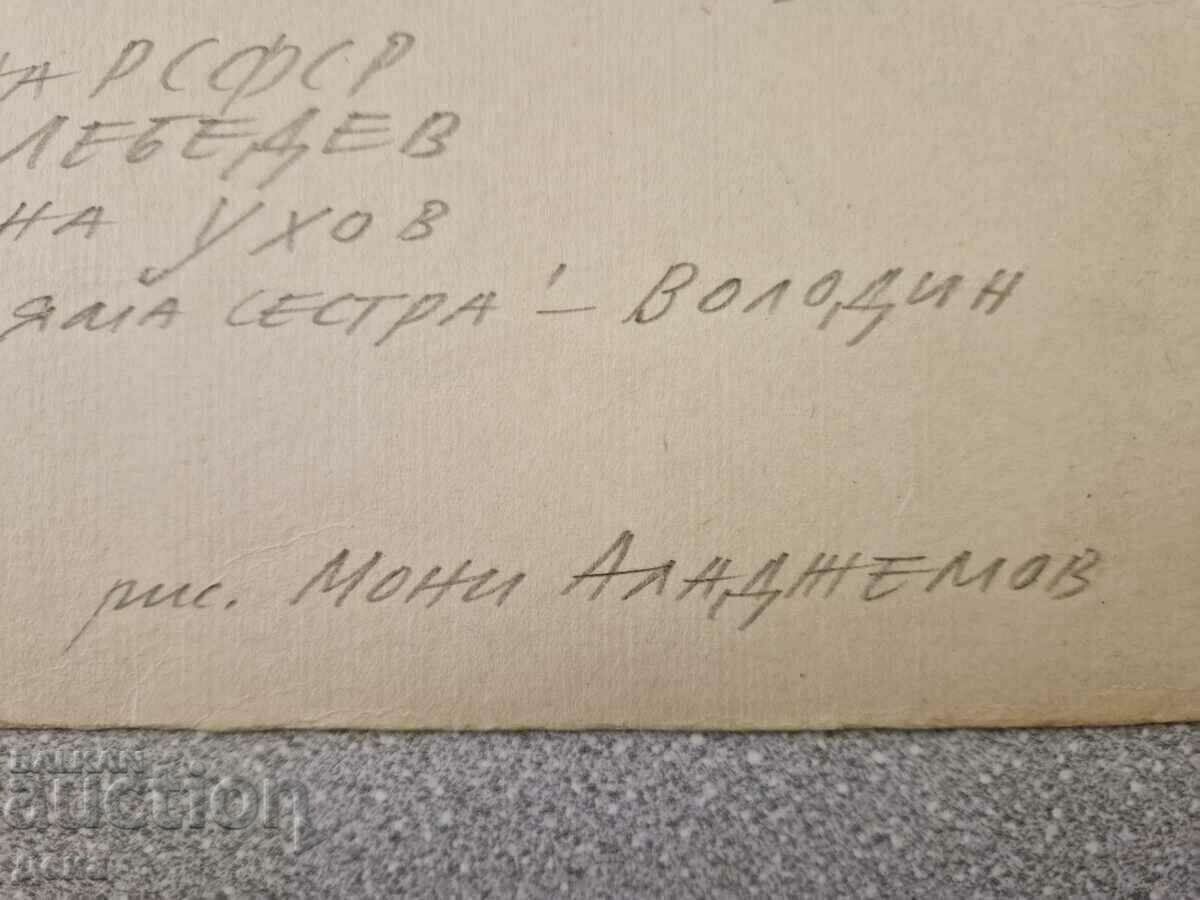 на РСФСР
ЛЕБЕДЕВ
НА УХОВ
ЯМА СЕСТРА" – ВОЛОДИН
рис. МОНИ АЛАДЖЕМОВ
БАЛКАН
auction